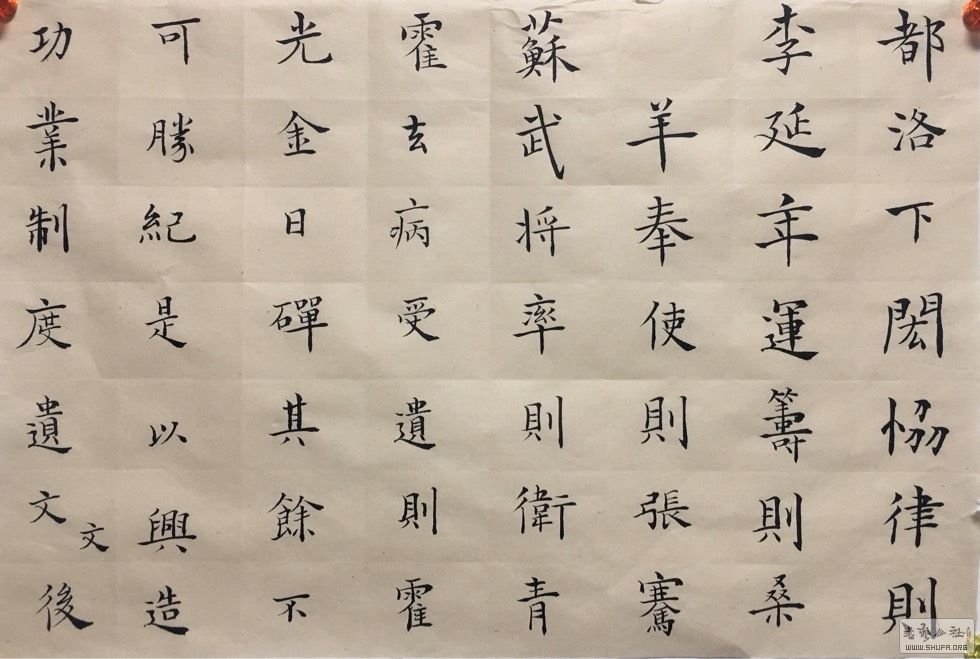 都洛下閎恊律則
李延年運籌則桑
羊奉使則張騫
蘇武将率則衛青
霍去病受遺則霍
光金日磾其餘不
可勝紀是以興造
功業制度遺文文後
書藝公社
WWW.SHUFA.ORG